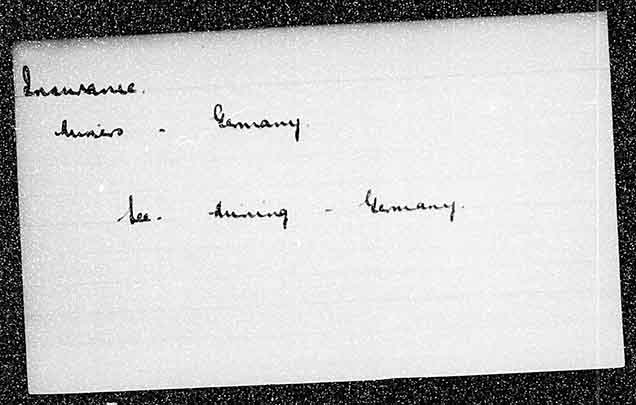 Insurance.
Miners - Germany.
See. Mining - Germany.